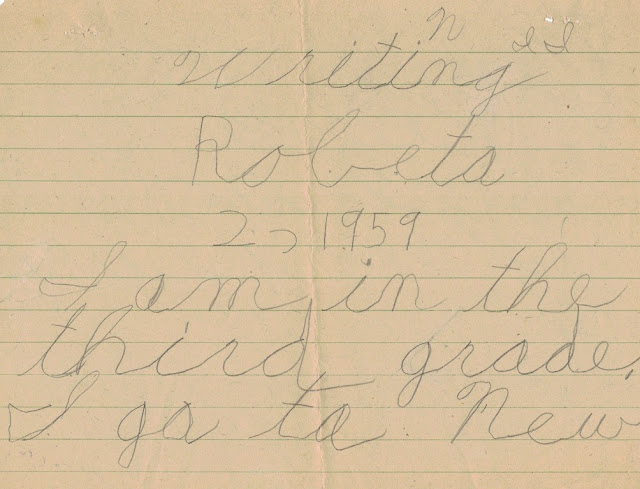 Writing
Robeta
2, 1959
I am in the
third grade.
I go to New